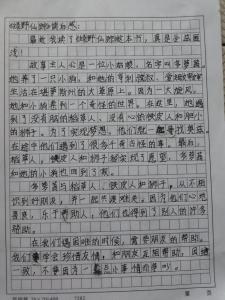 《绿野仙踪》读后感:
最近我读了《绿野仙踪》这本书,真是受益匪
浅!
故事主人公是一位小姑娘,名字叫多萝茜
她养了一只小狗,和她的亨利叔叔、爱姆婶婶
生活在堪萨斯州的大草原上。因为一次龙卷风,
她和小狗来到一个奇怪的世界。在这里,她遇
到了没有脑的稻草人,没有心的铁皮人和胆小
的狮子。为了实现梦想,他们就一起寻找奥兹,
在途中他们遇到了很多千奇百怪的事。最后,
稻草人,铁皮人和狮子都实现了愿望。多萝茜
和她的小狗也回到了
多萝茜与稻草人、铁皮人和狮子,从不相
识到好朋友,并一起共渡难关,因为他们心地
善良,乐于帮助人,他们也得到了别人的许多
帮助。
在我们遇到困难的时候,需要朋友的帮助。
我们要学会珍惜友情,和朋友互相帮助,团结
一致,不要因为一些小事情而争吵。